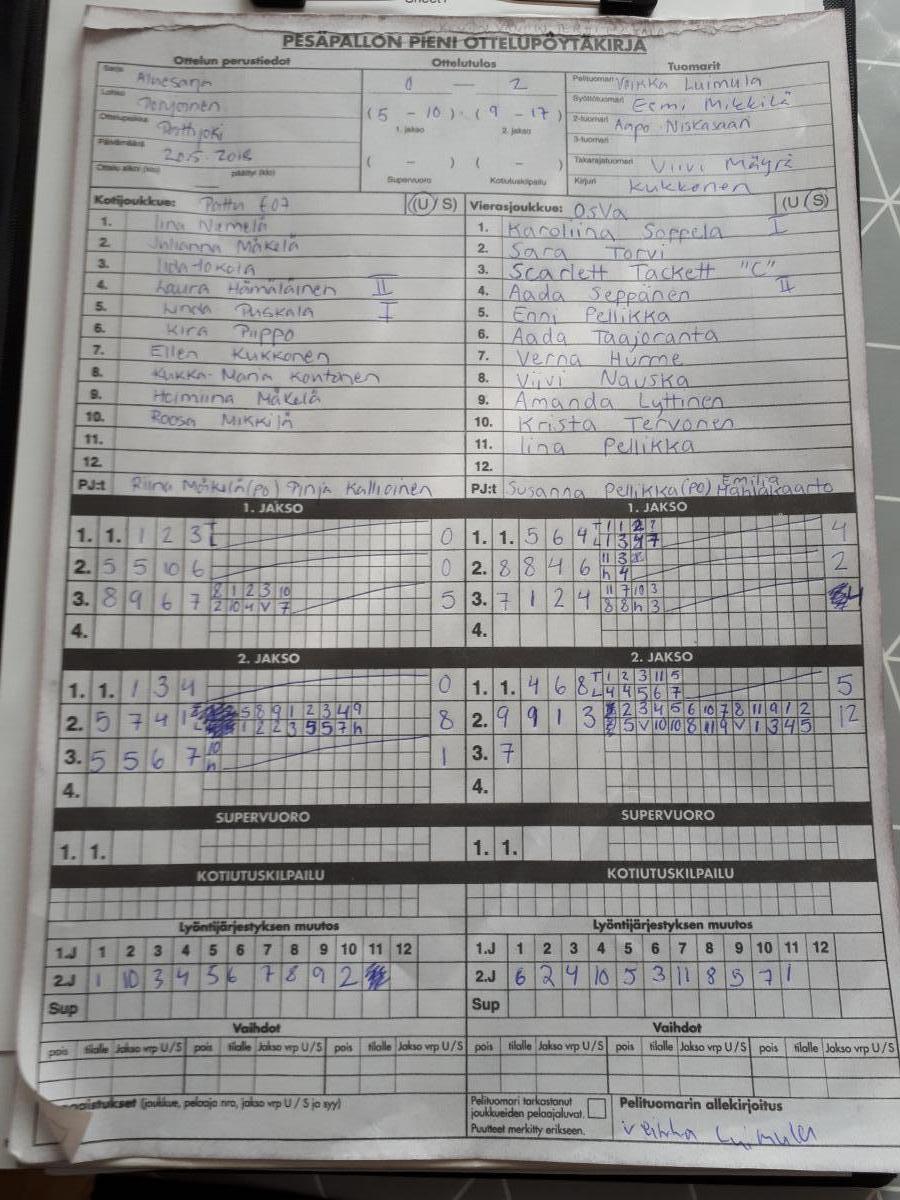 PESÄPALLON PIENI OTTELUPÖYTÄKIRJA
Ottelun perustiedot Ottelutulos Tuomarit
Sarja Aluesarja 0 — 2 Pelituomari Veikka Luimula
Lohko (5 - 10) (9 - 17) Syöttötuomari Eemi Mikkilä
Ottelupaikka Pattijoki 1. jakso 2. jakso 2-tuomari Aapo Niskasaari
Päivämäärä 20.5.2018 3-tuomari
Ottelu alkoi (klo) päättyi (klo) ( - ) ( - ) Takarajatuomari Viivi Mäyrä
Supervuoro Kotiutuskilpailu Kirjuri Kukkonen
Kotijoukkue: Pattu E07 (U / S) Vierasjoukkue: OsVa (U / S)
1. Iina Niemelä 1. Karoliina Soppela I
2. Julianna Mäkelä 2. Sara Torvi
3. Iida Jokela 3. Scarlett Tackett "C"
4. Laura Hämäläinen II 4. Aada Seppänen II
5. Linda Puskala I 5. Enni Pellikka
6. Kira Piippo 6. Aada Taajoranta
7. Ellen Kukkonen 7. Verna Hurme
8. Kukka-Maria Kontinen 8. Viivi Nauska
9. Helmiina Mäkelä 9. Amanda Lyttinen
10. Roosa Mikkilä 10. Krista Tervonen
11. 11. Iina Pellikka
12. 12.
PJ:t Riina Mäkelä (PO) Pinja Kallioinen PJ:t Susanna Pellikka (PO) Emilia
1. JAKSO 1. JAKSO
1. 1. 1 2 3 0 1. 1. 5 6 4 4
2. 5 5 10 6 0 2. 8 8 4 6 11 3 8 2
h 4
3. 8 9 6 7 8 1 2 3 10 5 3. 7 1 2 4 11 7 10 3 4
2 10 4 V 7 8 8 h 3
4. 4.
2. JAKSO 2. JAKSO
1. 1. 1 3 4 0 1. 1. 4 6 8 T 1 2 3 11 5 5
L 4 4 5 6 7
2. 5 7 4 1 5 8 9 1 2 3 4 9 8 2. 9 9 1 3 2 3 4 5 6 10 7 8 11 9 1 2 12
1 2 2 3 5 5 7 h 5 V 10 10 8 11 9 V 1 3 4 5
3. 5 5 6 7 10 1 3. 7
h
4. 4.
SUPERVUORO SUPERVUORO
1. 1. 1. 1.
KOTIUTUSKILPAILU KOTIUTUSKILPAILU
Lyöntijärjestyksen muutos Lyöntijärjestyksen muutos
1.J 1 2 3 4 5 6 7 8 9 10 11 12 1.J 1 2 3 4 5 6 7 8 9 10 11 12
2.J 1 10 3 4 5 6 7 8 9 2 2.J 6 2 4 10 5 3 11 8 9 7 1
Sup Sup
Vaihdot Vaihdot
pois tilalle Jakso vrp U/S pois tilalle Jakso vrp U/S pois tilalle Jakso vrp U/S pois tilalle Jakso vrp U/S pois tilalle Jakso vrp U/S pois tilalle Jakso vrp U/S
(joukkue, pelaaja nro, jakso vrp U / S ja syy) Pelituomari tarkastanut Pelituomarin allekirjoitus
joukkueiden pelaajaluvat.
Puutteet merkitty erikseen. Veikka Luimula